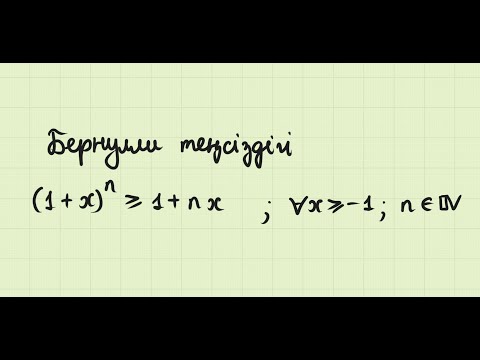 Бернулли теңсіздігі
(1+x)ⁿ ⩾ 1+nx ; ∀x⩾-1; n∈ℕ